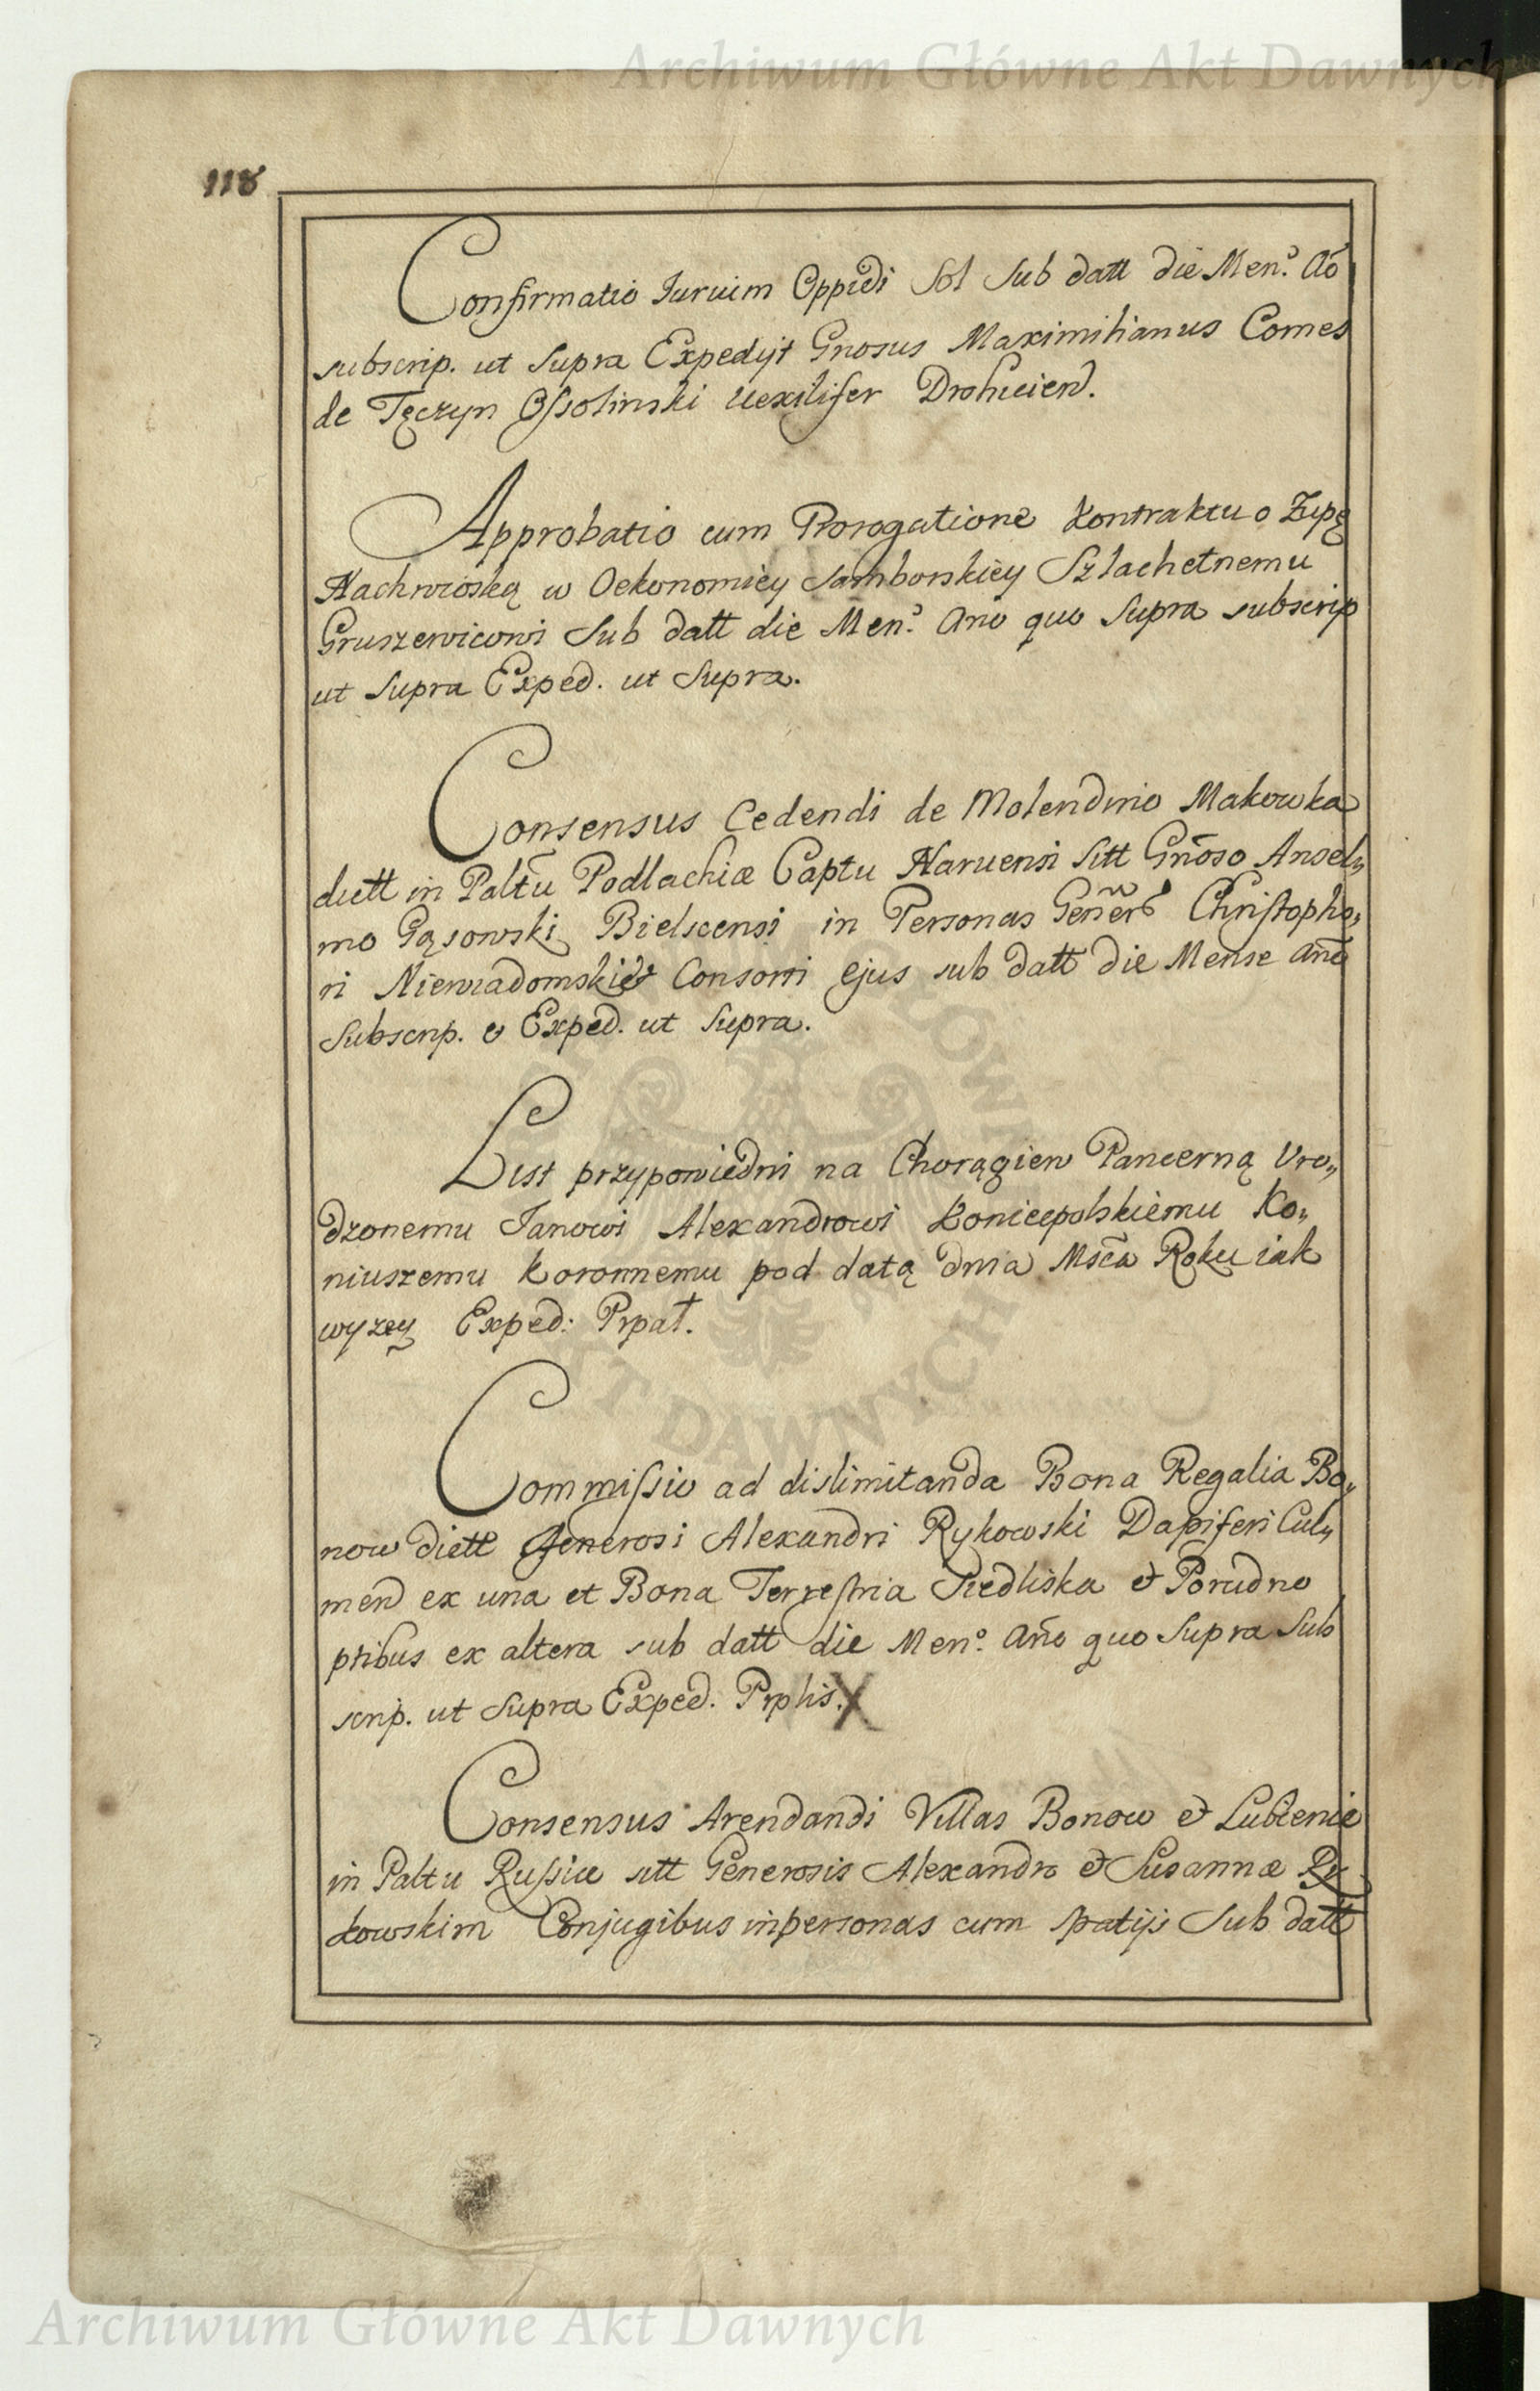 Archiwum Główne Akt Dawnych
118
Confirmatio Iurium Oppidi Sol Sub datt die Men. Aõ
subscrip. ut Supra Expedijt Gnosus Maximilianus Comes
de Tęczyn Ossolinski Vexilifer Drohiciens.
Approbatio cum Prorogatione Kontraktu o Zupę
w Oekonomiey Samborskiey Szlachetnemu
Gruszewicowi Sub datt die Men. Ano quo Supra subscrip
ut Supra Exped. ut Supra.
Consensus Cedendi de Molendino Makowka
dictt in Paltũ Podlachiæ Captu Naruensi Sitt Gnõso Ansel„
mo Gąsowski Bielscensi in Personas Christopho„
ri Niewiadomski et Consorti ejus sub datt die Mense Anõ
Subscrip. & Exped. ut Supra.
List przypowiedni na Chorągiew Pancerną Vro„
dzonemu Janowi Alexandrowi Koniecpolskiemu Ko„
niuszemu Koronnemu pod datą dnia Msca Roku iak
wyzey Exped: Prpat.
Commissio ad dislimitanda Bona Regalia Bo„
now dictt Generosi Alexandri Rykowski Dapiferi Cul„
men ex una et Bona Terrestria Siedliska & Porudno
ptibus ex altera sub datt die Men. Anõ quo Supra Sub
scrip. ut Supra Exped. Prplis. X
Consensus Arendandi Villas Bonow & Lublenie
in Paltu Russiæ sitt Generosis Alexandro & Susannæ Ry
kowskim Conjugibus in personas cum spatijs Sub datt
GŁÓWNE
AKT DAWNYCH
Archiwum Główne Akt Dawnych